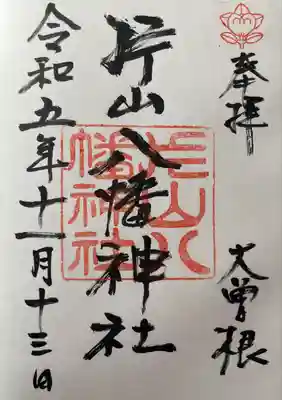 奉拝
大曽根
片山八幡神社
片山八
幡神社
令和五年十一月十三日